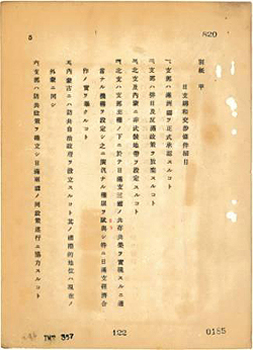 820
5
別紙 甲
日支媾和交渉條件細目
一、支那ハ滿洲國ヲ正式承認スルコト
二、支那ハ排日及反滿政策ヲ放棄スルコト
三、北支及內蒙ニ非武裝地帶ヲ設定スルコト
四、北支ハ支那主權ノ下ニ於テ日滿支三國ノ共存共榮ヲ實現スルニ適
當ナル機構ヲ設定シ之ニ廣汎ナル權限ヲ賦與シ特ニ日滿支經濟合
作ノ實ヲ擧クルコト
五、內蒙古ニハ防共自治政府ヲ設立スルコト其ノ國際的地位ハ現在ノ
外蒙ニ同シ
六、支那ハ防共政策ヲ確立シ日滿兩國ノ同政策遂行ニ協力スルコト
357
122
0185